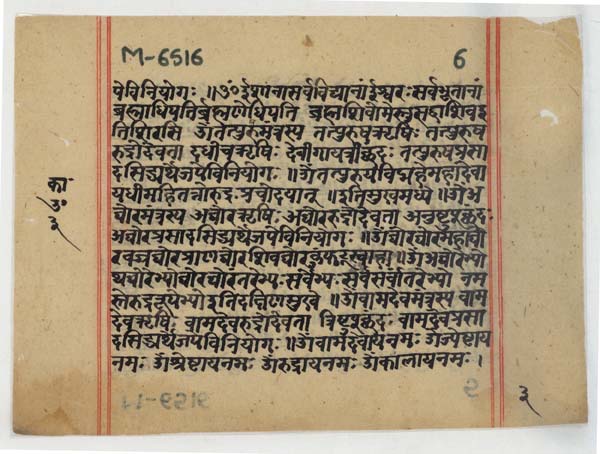 M-6516
6
पेविनियोगः ॥ॐ ईशानःसर्वविद्यानां ईश्वरः सर्वभूतानां
ब्रह्माधिपतिर्ब्रह्मणोधिपति ब्रह्मशिवोमेस्तुसदाशिव इ
तिशिरसि ॐ तत्पुरुषमंत्रस्य तत्पुरुषऋषिः तत्पुरुष
रुद्रोदेवता दधीचऋषिः देवीगायत्रीछंदः तत्पुरुषप्रसा
दसिद्ध्यर्थेजपेविनियोगः ॥ ॐतत्पुरुषेविद्महेमहादेवा
यधीमहितन्नोरुद्रः प्रचोदयात् ॥ इतिमुखमध्ये ॥ ॐअ
घोरमंत्रस्य अघोरऋषिः अघोररुद्रोदेवता अनुष्टुप्छंदः
अघोरप्रसादसिद्ध्यर्थेजपेविनियोगः ॥
ॐअघोरेभ्यो
थघोरेभ्योघोरघोरतरेभ्यः सर्वेभ्यः सर्वसर्वेभ्यो नम
स्तेरुद्ररूपेभ्यो इतिदक्षिणमुखे ॥ ॐवामदेवमंत्रस्य वाम
देवऋषिः वामदेवरुद्रोदेवता त्रिष्टुप्छंदः वामदेवप्रसा
दसिद्ध्यर्थेजपेविनियोगः ॥ ॐवामदेवायनमः ॐज्येष्ठाय
नमः ॐश्रेष्ठायनमः ॐरुद्रायनमः ॐकालायनमः ।
का
ॐ
३
३